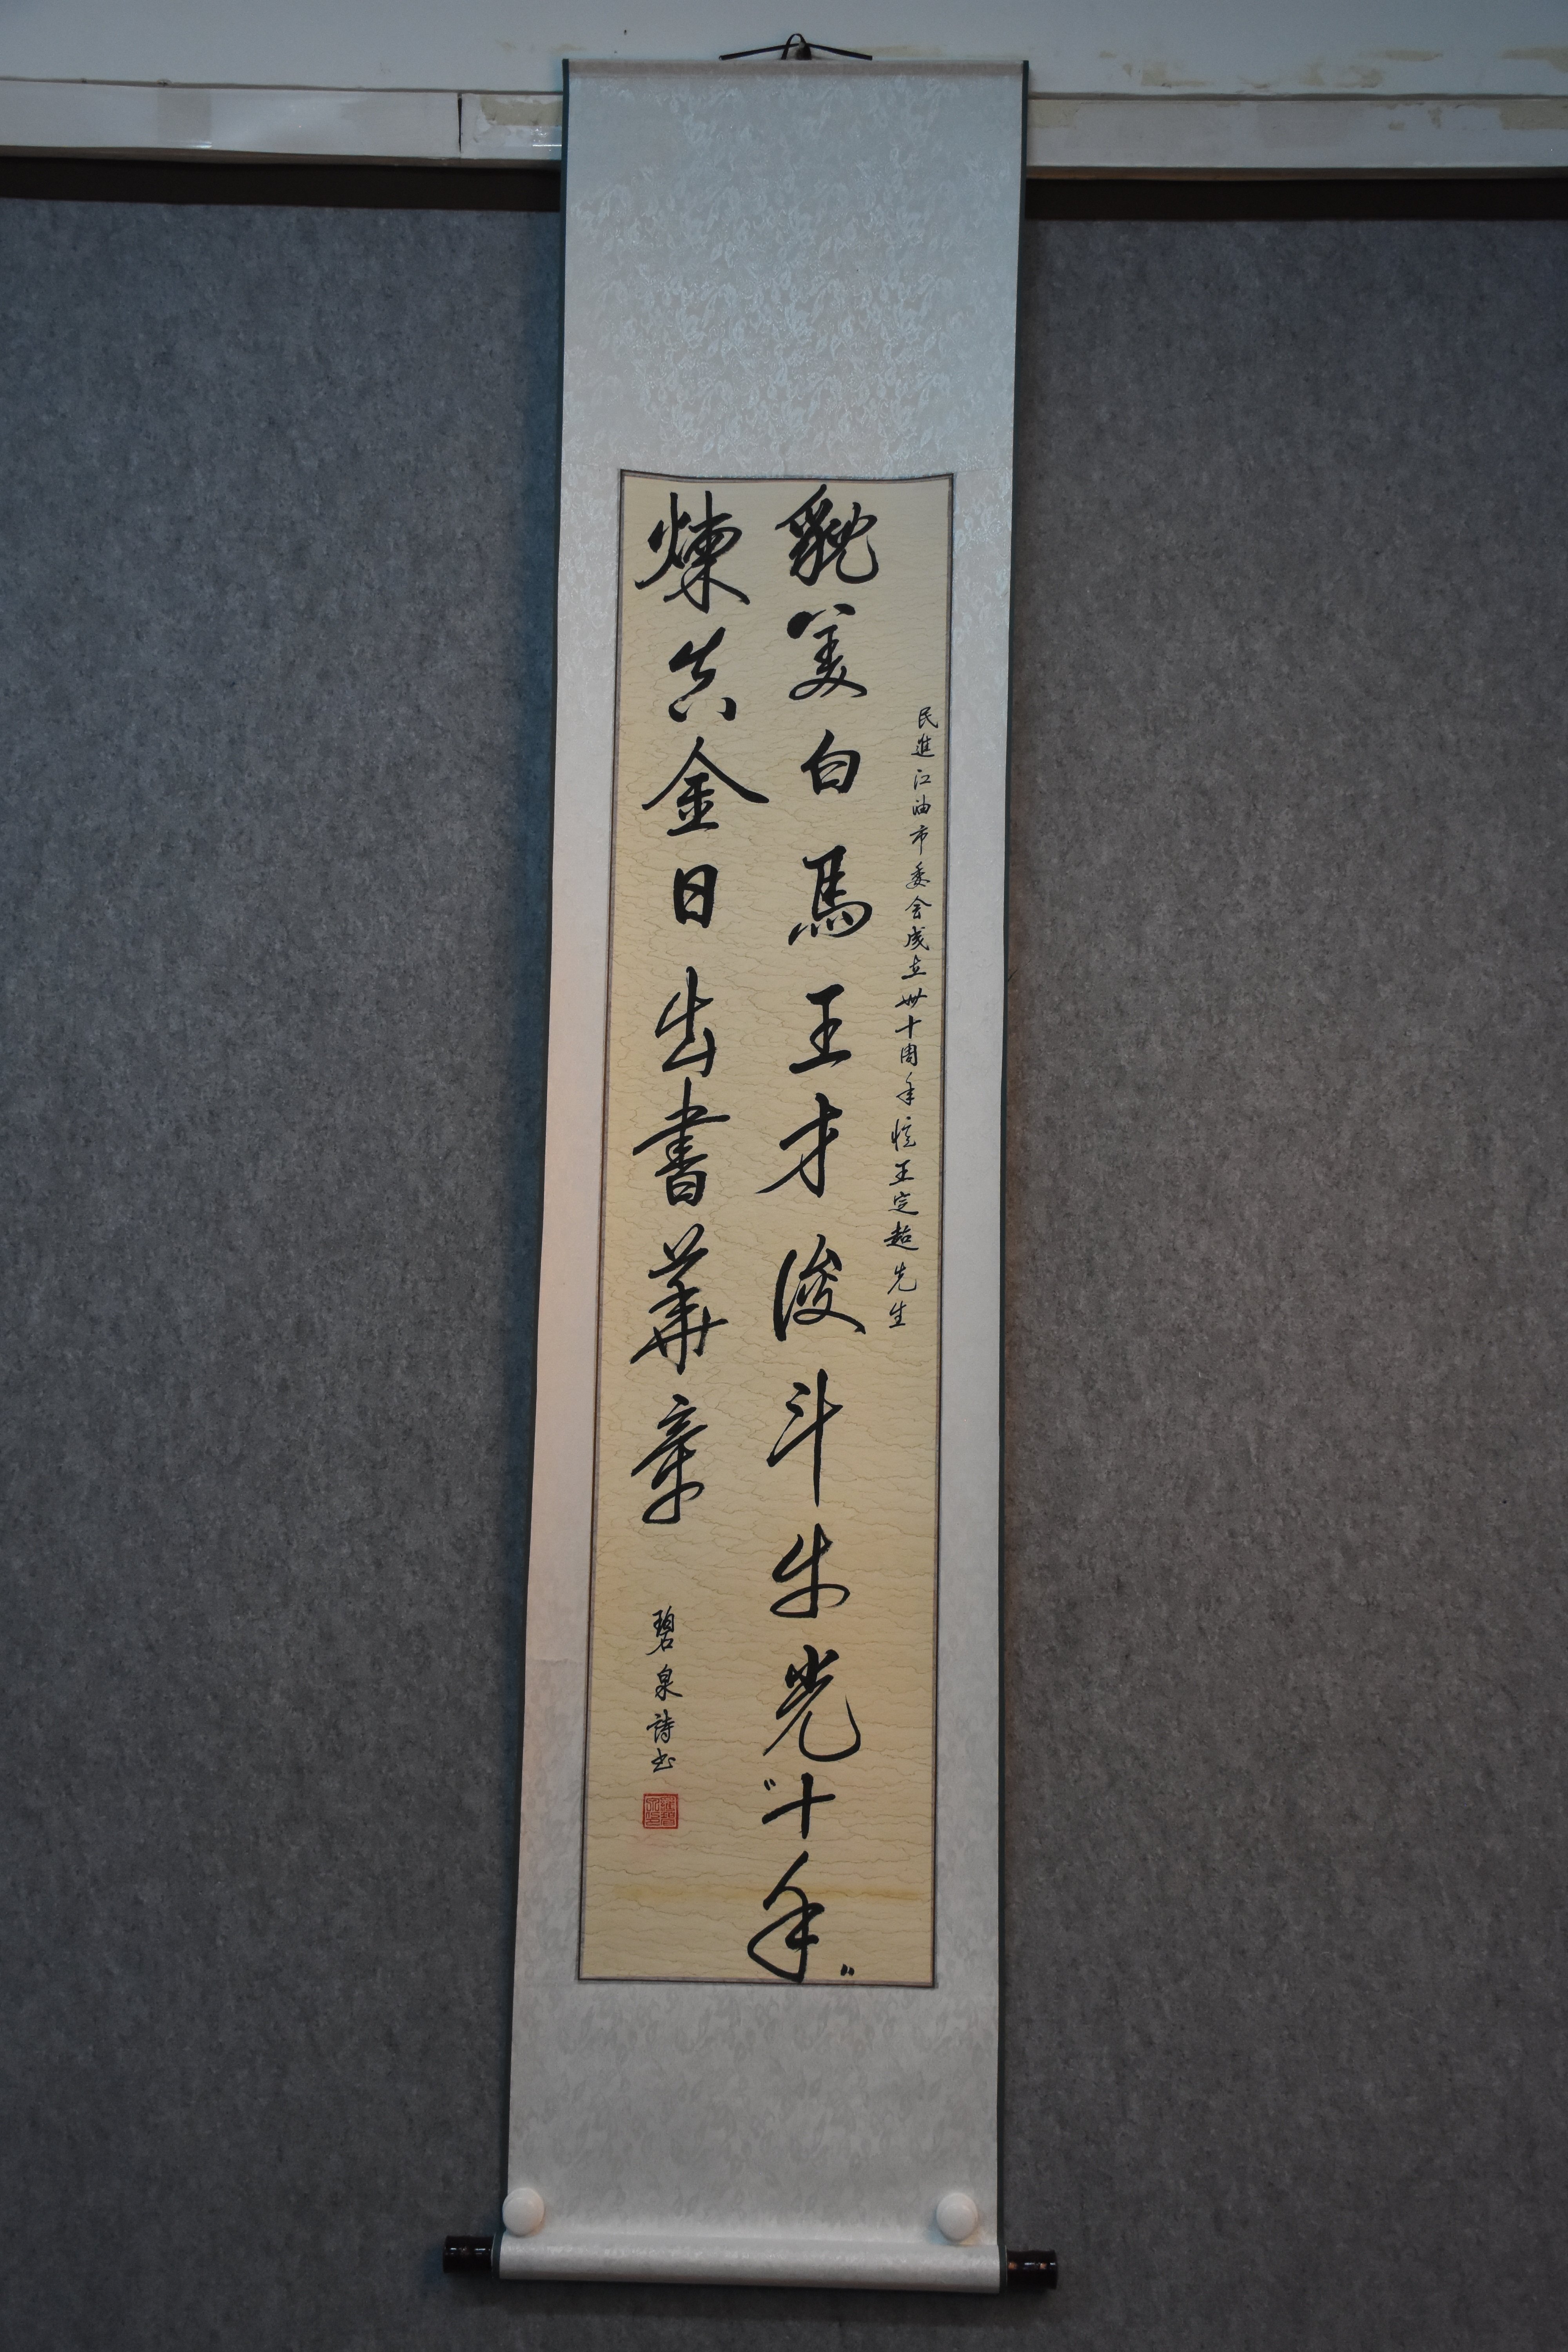 民進江油市委会成立卅十周年忆王定超先生
貌美白馬王才浚斗牛光“十年”
煉真金日出書華章
碧泉詩书